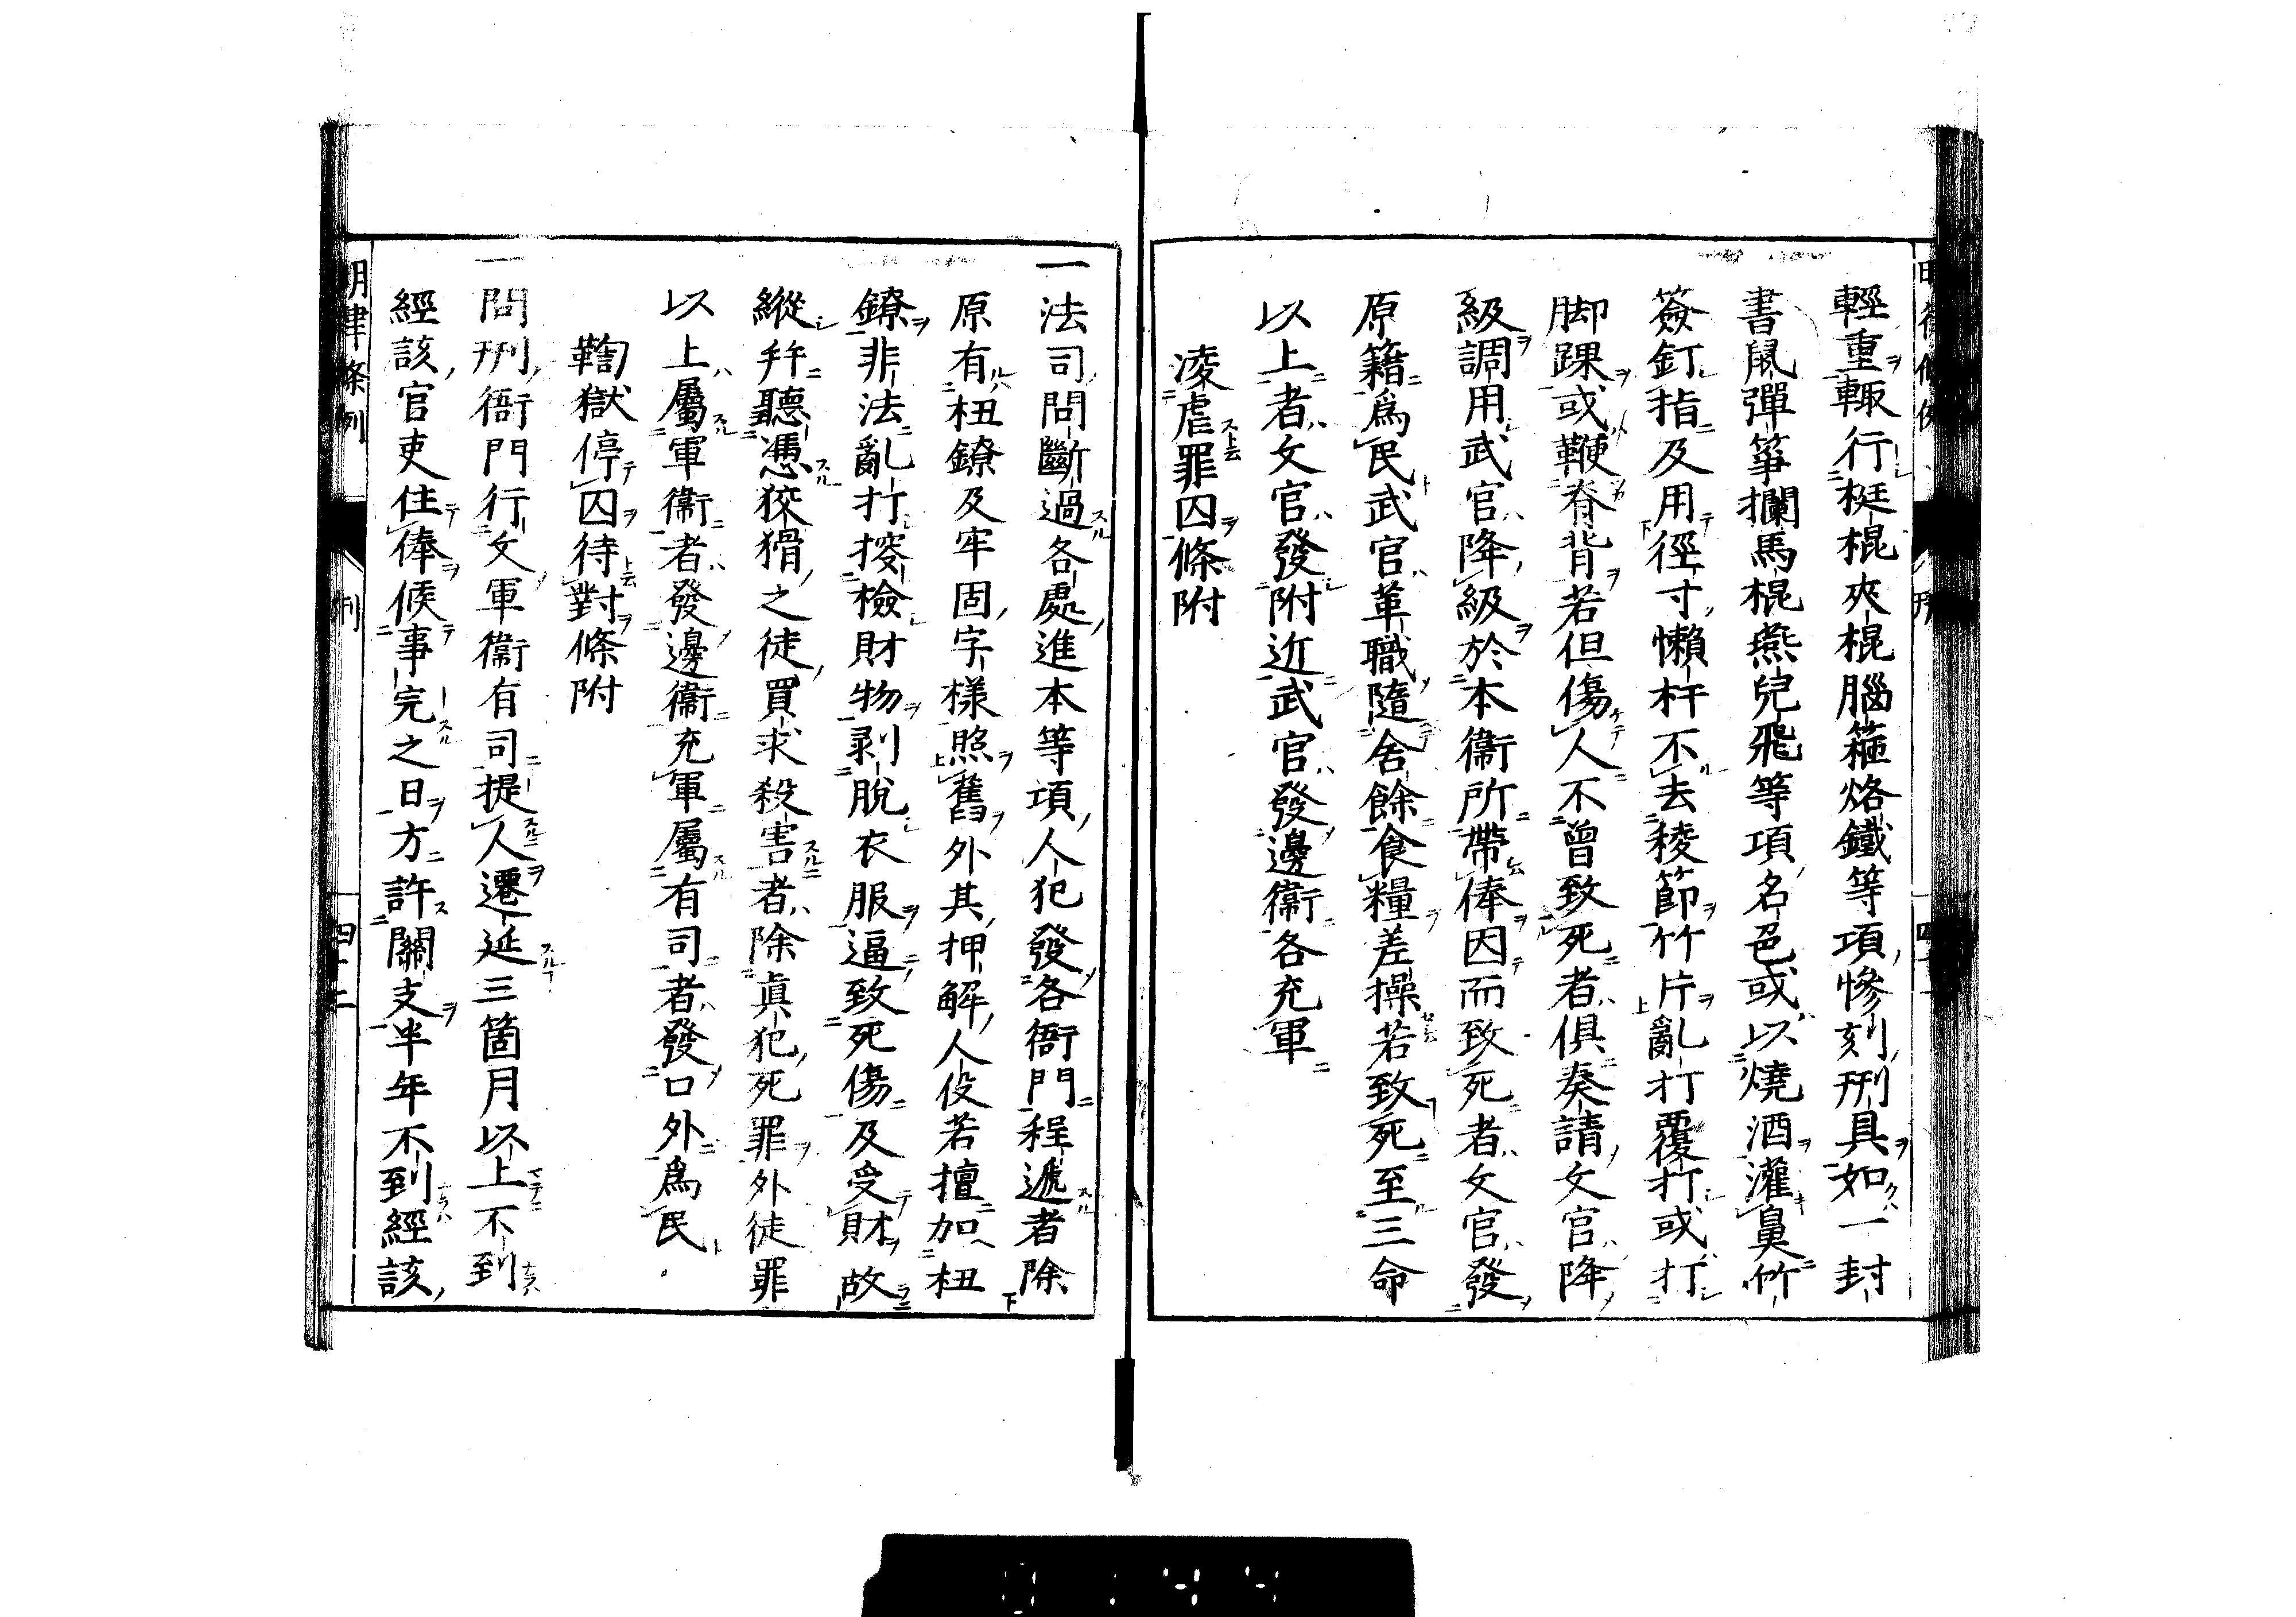 輕重輙行梃棍夾棍腦箍烙鐵等項慘刻刑具如一封
書鼠彈箏攔馬棍燕兒飛等項名色或以燒酒灌鼻竹
簽釘指及用徑寸懶杆不去稜節竹片亂打覆打或打
脚踝或鞭脊背若但傷人不曾致死者俱奏請文官降
級調用武官降級於本衞所帶俸因而致死者文官發
原籍爲民武官革職隨舍餘食糧差操若致死至三命
以上者文官發附近武官發邊衞各充軍
淩虐罪囚條附
一法司問斷過各處進本等項人犯發各衙門程遞者除
原有杻鐐及牢固字樣照舊外其押解人役若擅加杻
鐐非法亂打搜檢財物剥脫衣服逼致死傷及受財故
縱幷聽憑狡猾之徒買求殺害者除眞犯死罪外徒罪
以上屬軍衞者發邊衞充軍屬有司者發口外爲民
鞫獄停囚待對條附
一問刑衙門行文軍衞有司提人遷延三箇月以上不到
經該官吏住俸候事完之日方許關支半年不到經該
明律條例 刑 四十二